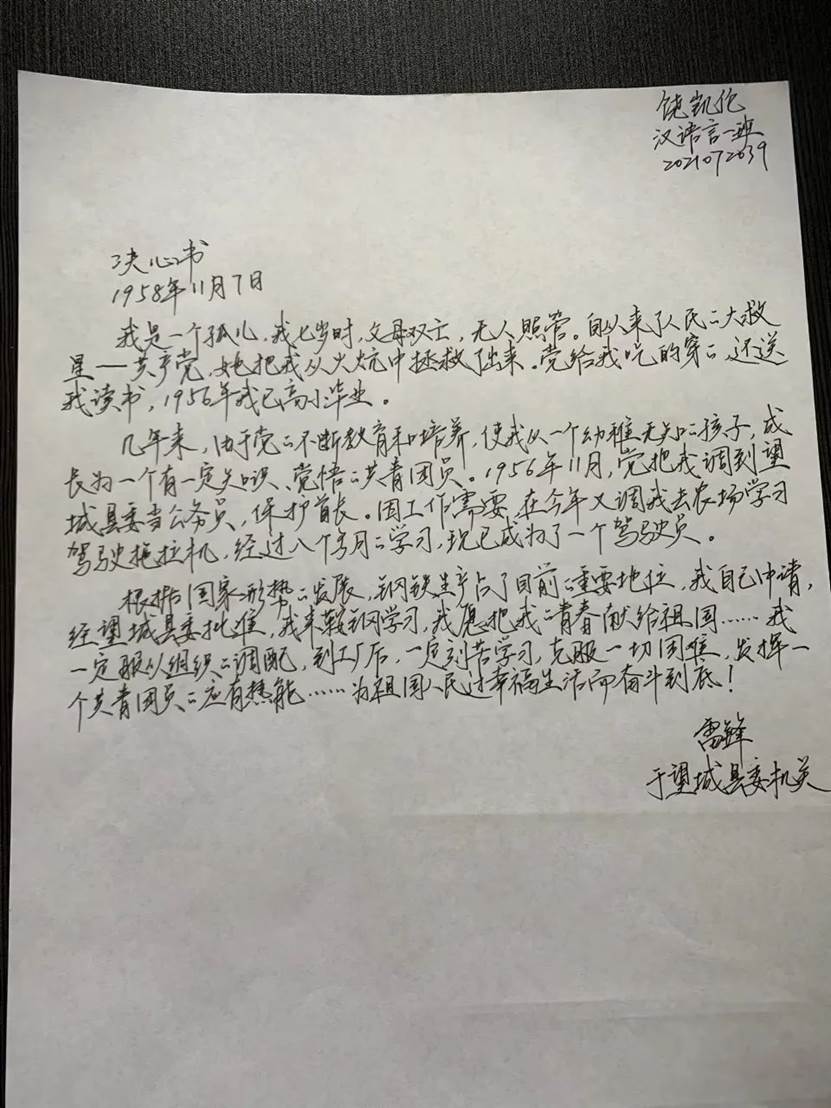 饶凯伦
汉语言一班
2021072039
决心书
1958年11月7日
我是一个孤儿,我七岁时,父母双亡,无人照管。自从来了人民的大救
星——共产党,她把我从火炕中拯救了出来。党给我吃的穿的,还送
我读书,1956年我已高小毕业。
几年来,由于党的不断教育和培养,使我从一个幼稚无知的孩子,成
长为一个有一定知识、觉悟的共青团员。1956年11月,党把我调到望
城县委当公务员,保护首长。因工作需要,在今年又调我去农场学习
驾驶拖拉机,经过八个多月的学习,现已成为了一个驾驶员。
根据国家形势的发展,钢铁生产占了目前的重要地位,我自己申请,
经望城县委批准,我来鞍钢学习,我愿把我的青春献给祖国……我
一定服从组织的调配,到工厂后,一定刻苦学习,克服一切困难,发挥一
个共青团员的应有热能……为祖国人民过幸福生活而奋斗到底!
雷锋
于望城县委机关